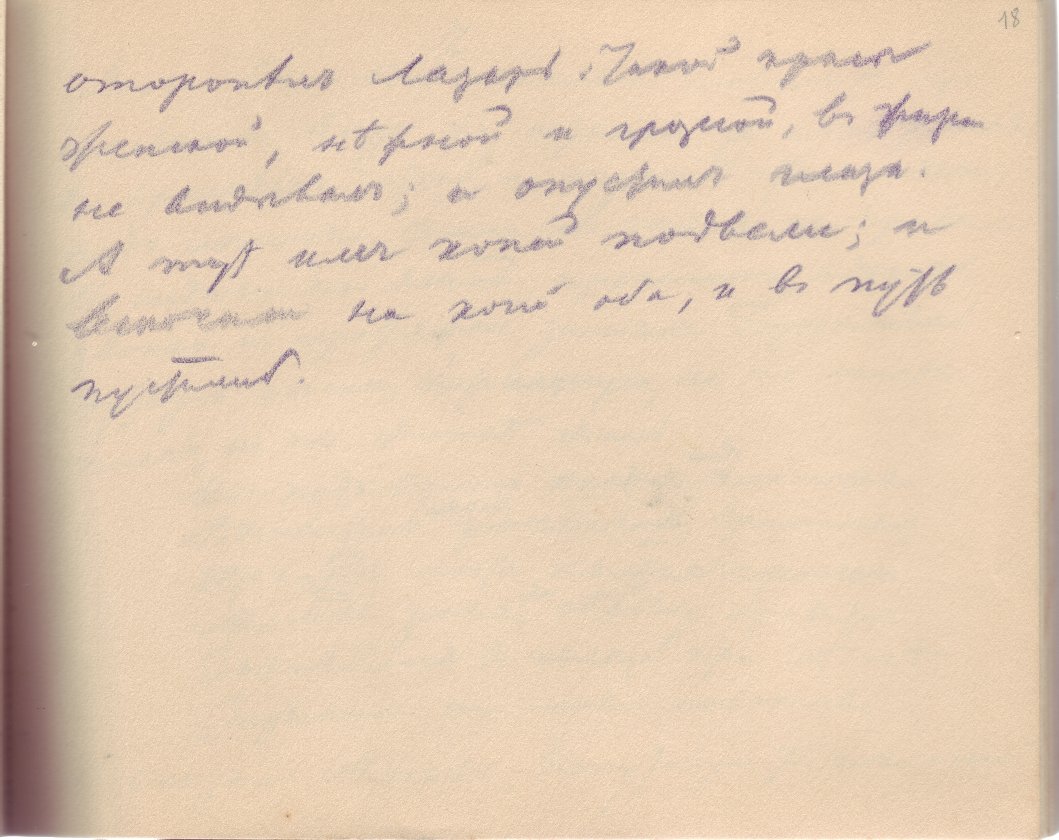 18
оторопѣлъ Лазарь. Такой красы
женской, нѣжной и грозной, въ жизни
не видывалъ; и опустилъ глаза.
А тут имъ коней подвели; и
вскочили на коней оба, и въ путь
пустились.